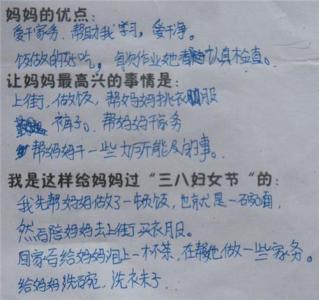 妈妈的优点:
爱干家务、帮助我学习,爱干净。
饭做的好吃,每次作业她都认真检查。
让妈妈最高兴的事情是:
上街、做饭,帮妈妈挑衣服
裤子。帮妈妈干家务
帮妈妈干一些力所能及的事。
我是这样给妈妈过“三八妇女节”的:
我先帮妈妈做了一顿饭,也就是一碗面,
然后陪妈妈去上街买衣服。
回家百给妈妈泡上一杯茶,在帮她做一些家务。
给妈妈洗碗,洗衣服